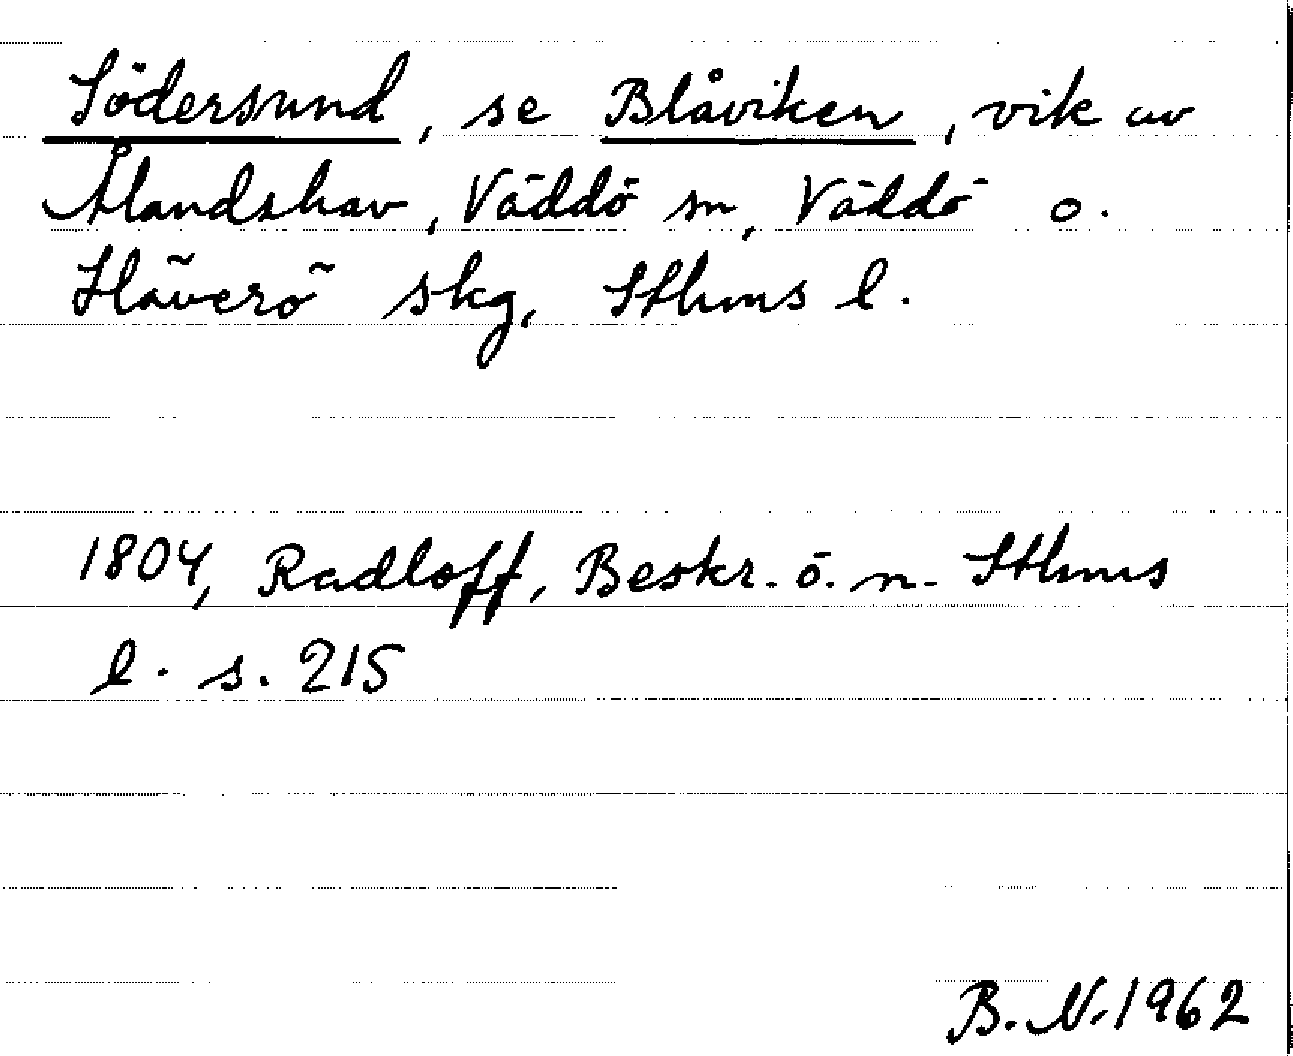 Södersund, se Blåviken, vik av
Ålandshav, Väddö sn, Väddö o.
Häverö skg, Sthms l.
1804, Radloff, Beskr. ö. n. Sthms
l. s. 215
B. N. 1962